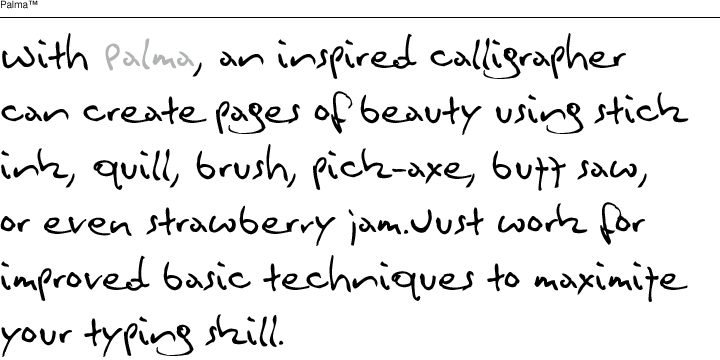 Palma™
With Palma, an inspired calligrapher
can create pages of beauty using stick
ink, quill, brush, pick-axe, buzz saw,
or even strawberry jam.Just work for
improved basic techniques to maximize
your typing skill.